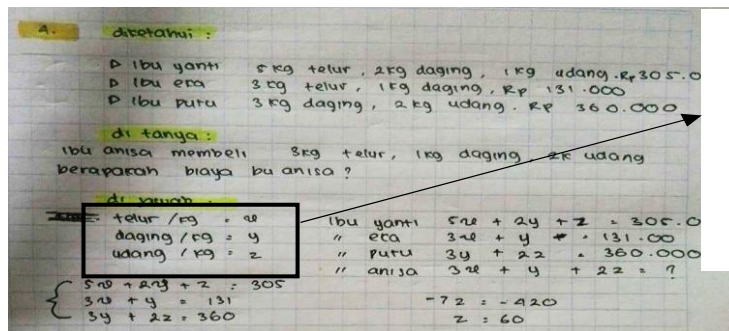 4. diketahui :
▷ Ibu yanti 5 kg telur, 2kg daging, 1kg udang. Rp 305.0
▷ Ibu eca 3 kg telur, 1kg daging, Rp 131.000
▷ Ibu putu 3 kg daging, 2kg udang. Rp 360.000
di tanya :
Ibu anisa membeli 3kg telur, 1kg daging, 2k udang
berapakah biaya bu anisa ?
di jawab :
telur /kg = x
daging /kg = y
udang /kg = z
Ibu yanti 5x + 2y + z = 305.0
" eca 3x + y = 131.00
" putu 3y + 2z = 360.000
" anisa 3x + y + 2z = ?
5x + 2y + z = 305
3x + y = 131
3y + 2z = 360
-7z = -420
z = 60